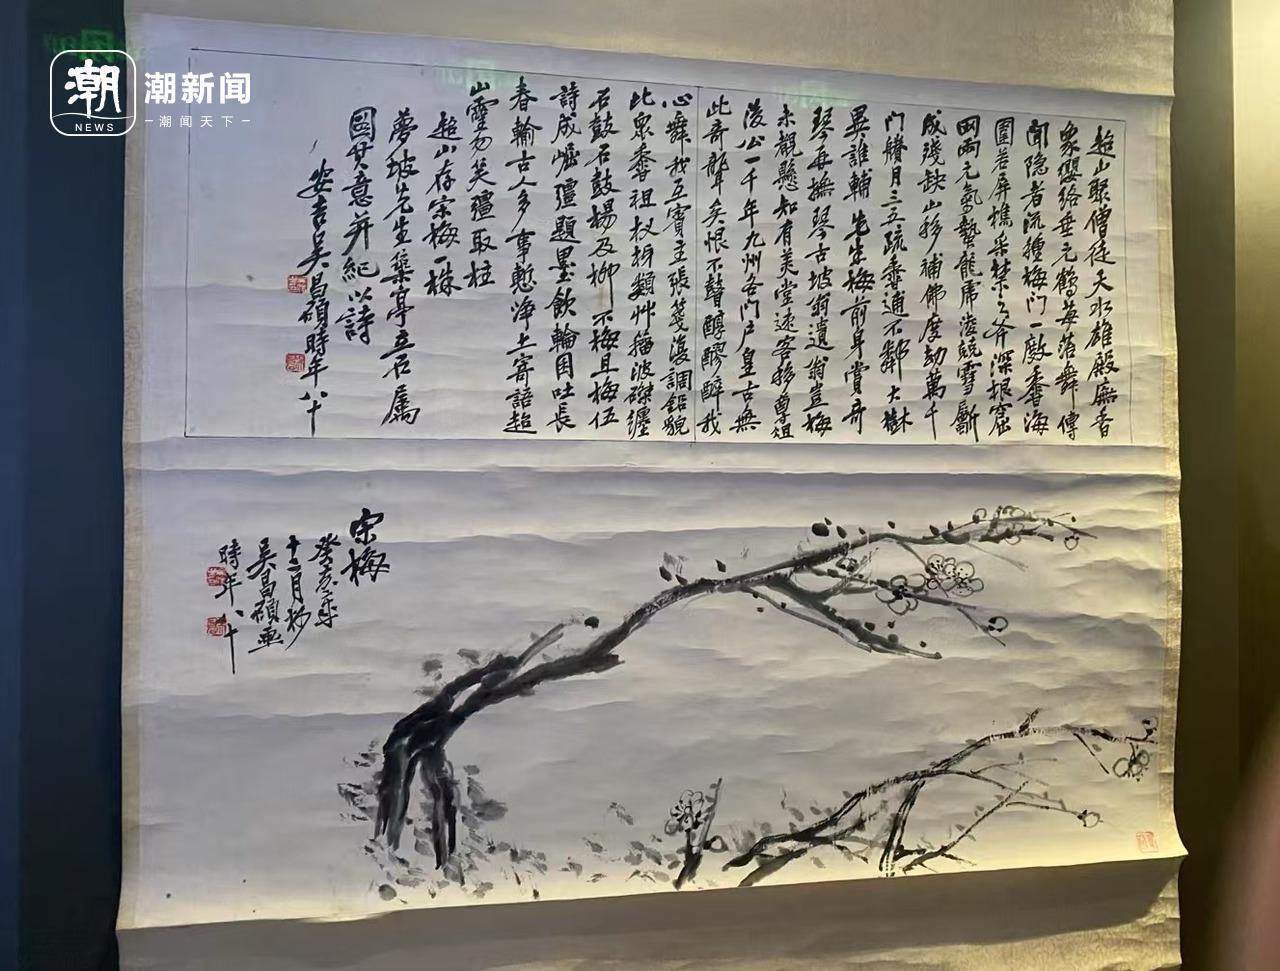 潮
NEWS
潮新闻
潮闻天下
超山聚僧徒天水雄殿廡香
象纓絡垂元鶴每落舞傳
聞隐者流種梅門一敞香海
圍若屏樵采禁之斧深根窟
网兩元氣蟄龍虎淩競雪斷
成殘缺山移補佛度劫萬千
門櫕月三五疏香通不鄰大樹
異誰輔先生梅前身賞奇
琴再撫琴古坡翁遺翁豈梅
未觀懸知有美堂速客移尊俎
後公一千年九州各門户皇古無
此奇聲矣恨不聲醇醪醉我
心舞我互賓主張箋澓調鉛貌
此衆香祖杈枒類艸籀波磔纏
石鼓石鼓楊及柳不梅且梅伍
詩成崛彊題墨飲輪囷吐長
春輪古人多事慙淨土寄語超
山靈勿笑彊取柱
超山存宗梅一株
夢坡先生築亭立石屬
圖其意并紀以詩
安吉吴昌碩時年八十
宗梅
癸亥年
十二月杪
吴昌碩畫
時年八十